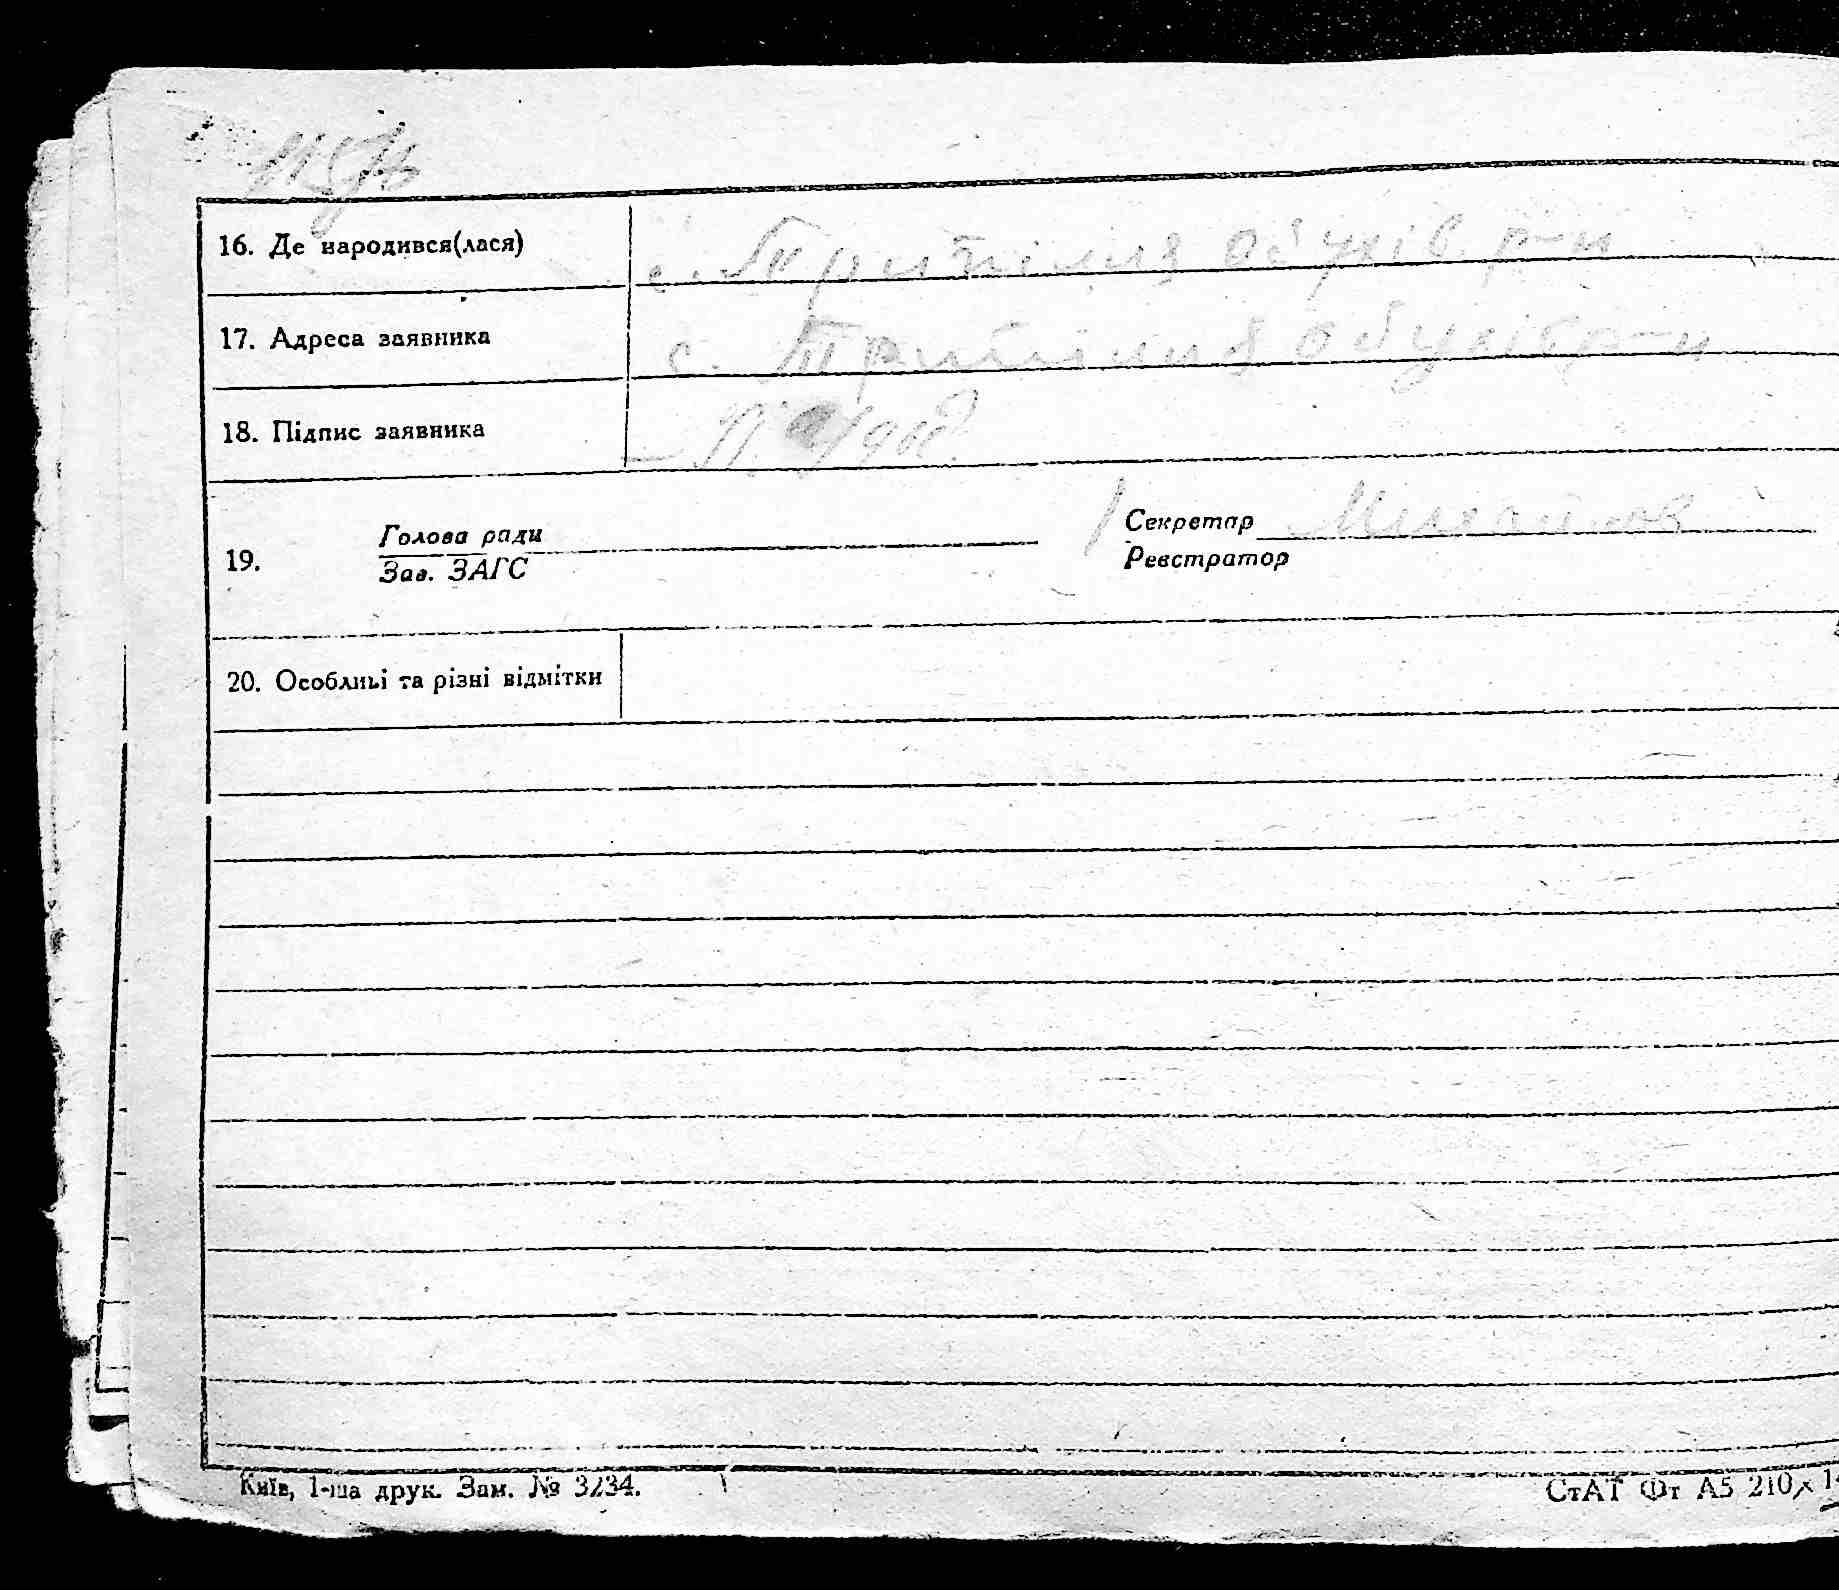 16. Де народився(лася) с. Трипілля Обухів. р-н
17. Адреса заявника с. Трипілля Обухів р-н
18. Підпис заявника
19. Голова ради Секретар
Зав. ЗАГС Реєстратор
20. Особливі та різні відмітки
Київ, 1-ша друк. Зам. № 3234. СтАТ Фт А5 210×